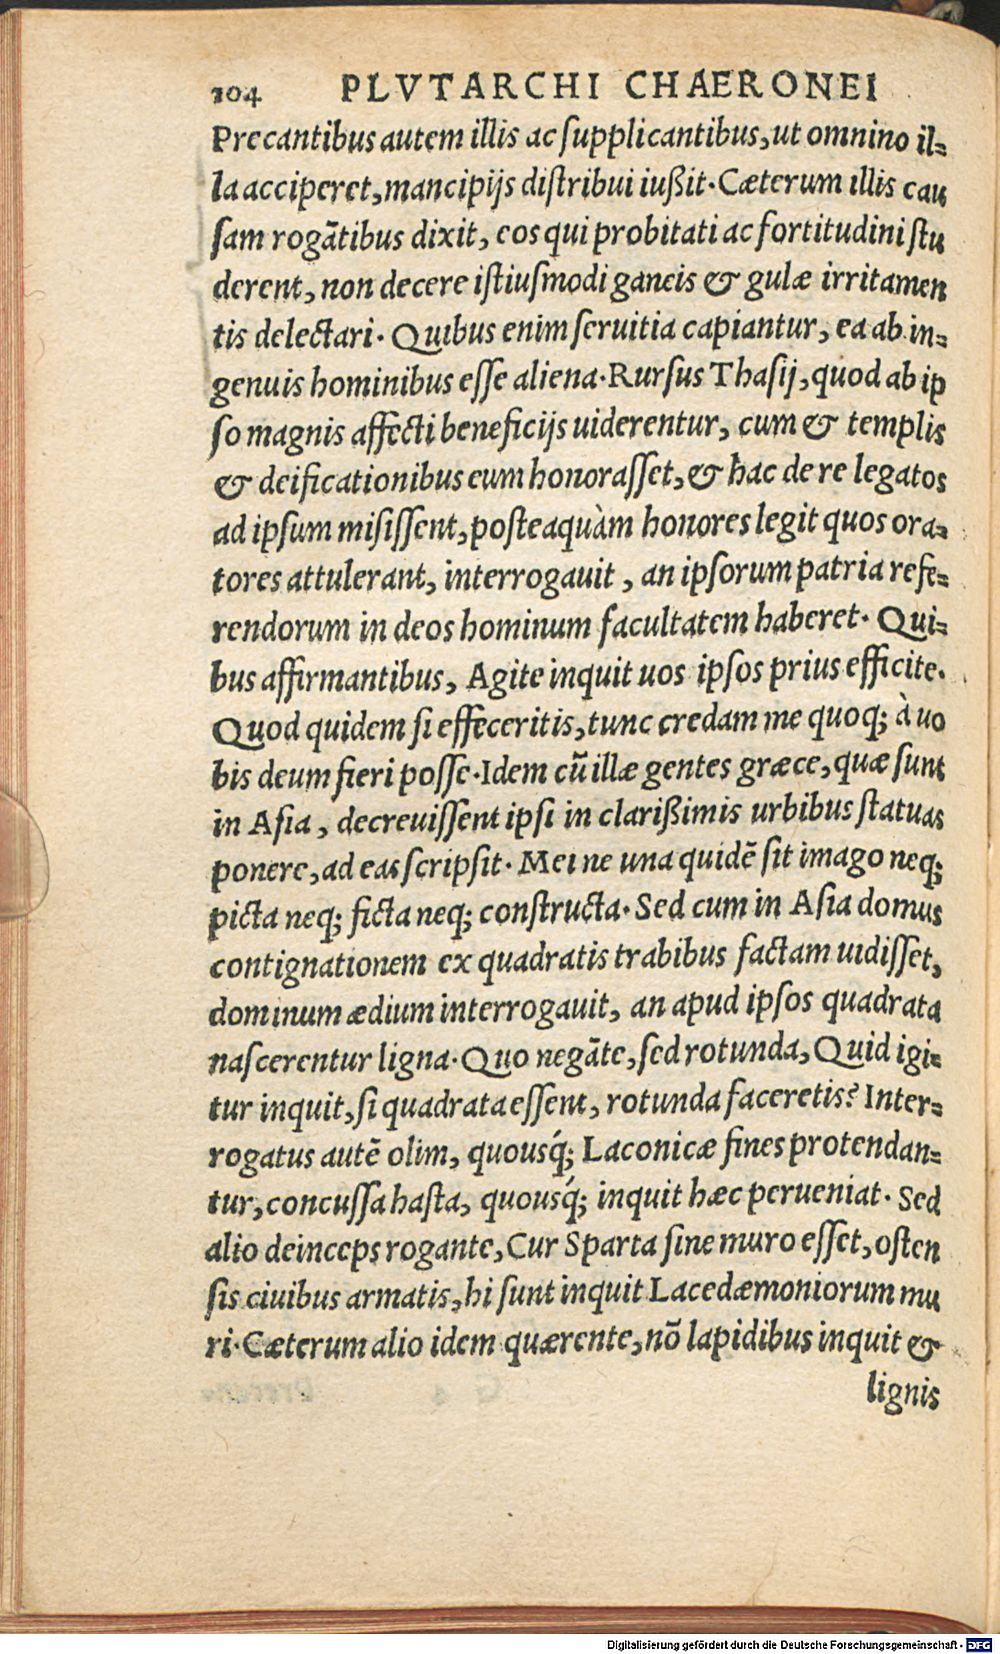 104 PLVTARCHI CHAERONEI
Precantibus autem illis ac ſupplicantibus, ut omnino il=
la acciperet, mancipijs diſtribui iußit. Cæterum illis cau
ſam rogãtibus dixit, eos qui probitati ac fortitudini ſtu
derent, non decere iſtiuſmodi ganeis & gulæ irritamen
tis delectari. Quibus enim ſeruitia capiantur, ea ab in=
genuis hominibus eſſe aliena. Rurſus Thaſij, quod ab ip
ſo magnis affecti beneficijs uiderentur, cum & templis
& deificationibus eum honoraſſet, & hac de re legatos
ad ipſum miſiſſent, poſteaquàm honores legit quos ora=
tores attulerant, interrogauit, an ipſorum patria refe=
rendorum in deos hominum facultatem haberet. Qui=
bus affirmantibus, Agite inquit uos ipſos prius efficite.
Quod quidem ſi effeceritis, tunc credam me quoq; à uo
bis deum fieri poſſe. Idem cũ illæ gentes græce, quæ ſunt
in Aſia, decreuiſſent ipſi in clarißimis urbibus ſtatuas
ponere, ad eas ſcripſit. Mei ne una quidẽ ſit imago neq;
picta neq; ficta neq; conſtructa. Sed cum in Aſia domus
contignationem ex quadratis trabibus factam uidiſſet,
dominum ædium interrogauit, an apud ipſos quadrata
naſcerentur ligna. Quo negãte, ſed rotunda, Quid igi=
tur inquit, ſi quadrata eſſent, rotunda faceretis? Inter=
rogatus autẽ olim, quouſq́; Laconicæ fines protendan=
tur, concuſſa haſta, quouſq́; inquit hæc perueniat. Sed
alio deinceps rogante, Cur Sparta ſine muro eſſet, oſten
ſis ciuibus armatis, hi ſunt inquit Lacedæmoniorum mu
ri. Cæterum alio idem quærente, nõ lapidibus inquit &
lignis
Digitalisierung gefördert durch die Deutsche Forschungsgemeinschaft - DFG